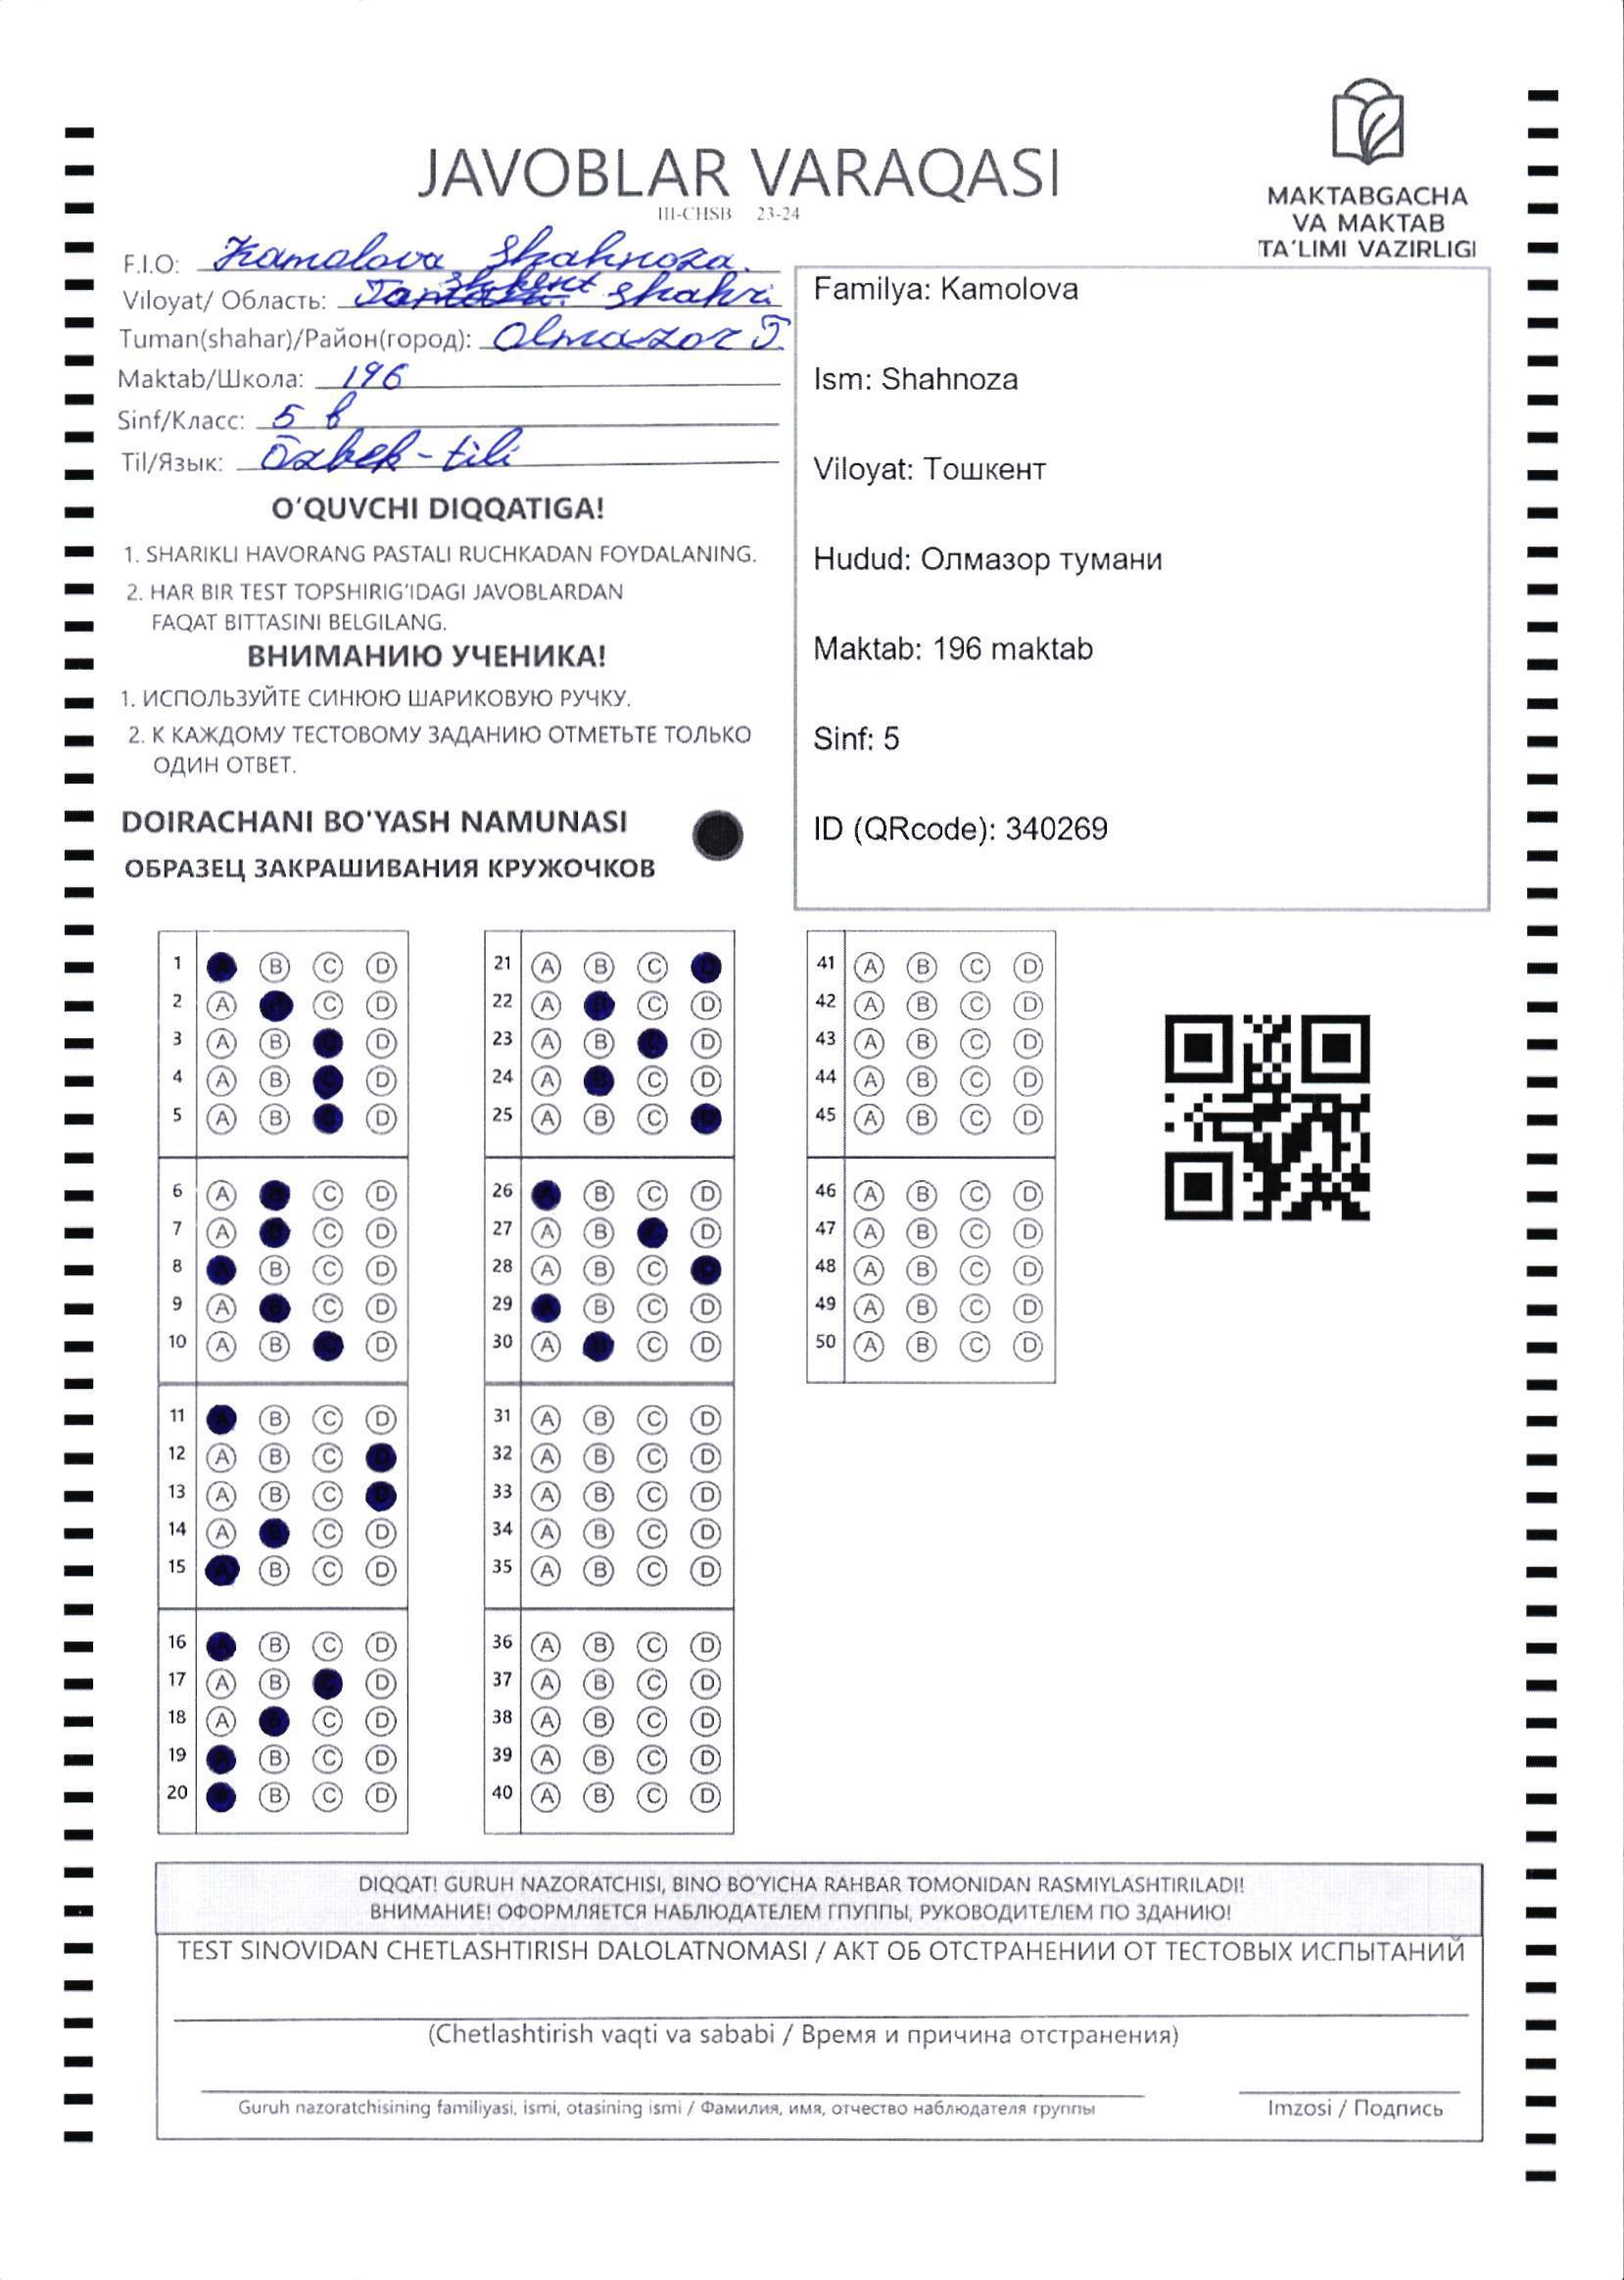 JAVOBLAR VARAQASI
III-CHSB 23-24
MAKTABGACHA
VA MAKTAB
TA'LIMI VAZIRLIGI
F.I.O: Kamolova Shahnoza.
Viloyat/ Область: shkent shahri
Tuman(shahar)/Район(город): Olmazor T
Maktab/Школа: 196
Sinf/Класс: 5 b
Til/Язык: Özbek-tili
O'QUVCHI DIQQATIGA!
1. SHARIKLI HAVORANG PASTALI RUCHKADAN FOYDALANING.
2. HAR BIR TEST TOPSHIRIG'IDAGI JAVOBLARDAN
FAQAT BITTASINI BELGILANG.
ВНИМАНИЮ УЧЕНИКА!
1. ИСПОЛЬЗУЙТЕ СИНЮЮ ШАРИКОВУЮ РУЧКУ.
2. К КАЖДОМУ ТЕСТОВОМУ ЗАДАНИЮ ОТМЕТЬТЕ ТОЛЬКО
ОДИН ОТВЕТ.
DOIRACHANI BO'YASH NAMUNASI
ОБРАЗЕЦ ЗАКРАШИВАНИЯ КРУЖОЧКОВ
Familya: Kamolova
Ism: Shahnoza
Viloyat: Тошкент
Hudud: Олмазор тумани
Maktab: 196 maktab
Sinf: 5
ID (QRcode): 340269
1 A B C D
2 A B C D
3 A B C D
4 A B C D
5 A B C D
6 A B C D
7 A B C D
8 A B C D
9 A B C D
10 A B C D
11 A B C D
12 A B C D
13 A B C D
14 A B C D
15 A B C D
16 A B C D
17 A B C D
18 A B C D
19 A B C D
20 A B C D
21 A B C D
22 A B C D
23 A B C D
24 A B C D
25 A B C D
26 A B C D
27 A B C D
28 A B C D
29 A B C D
30 A B C D
31 A B C D
32 A B C D
33 A B C D
34 A B C D
35 A B C D
36 A B C D
37 A B C D
38 A B C D
39 A B C D
40 A B C D
41 A B C D
42 A B C D
43 A B C D
44 A B C D
45 A B C D
46 A B C D
47 A B C D
48 A B C D
49 A B C D
50 A B C D
DIQQAT! GURUH NAZORATCHISI, BINO BO'YICHA RAHBAR TOMONIDAN RASMIYLASHTIRILADI!
ВНИМАНИЕ! ОФОРМЛЯЕТСЯ НАБЛЮДАТЕЛЕМ ГПУППЫ, РУКОВОДИТЕЛЕМ ПО ЗДАНИЮ!
TEST SINOVIDAN CHETLASHTIRISH DALOLATNOMASI / АКТ ОБ ОТСТРАНЕНИИ ОТ ТЕСТОВЫХ ИСПЫТАНИЙ
(Chetlashtirish vaqti va sababi / Время и причина отстранения)
Guruh nazoratchisining familiyasi, ismi, otasining ismi / Фамилия, имя, отчество наблюдателя группы
Imzosi / Подпись